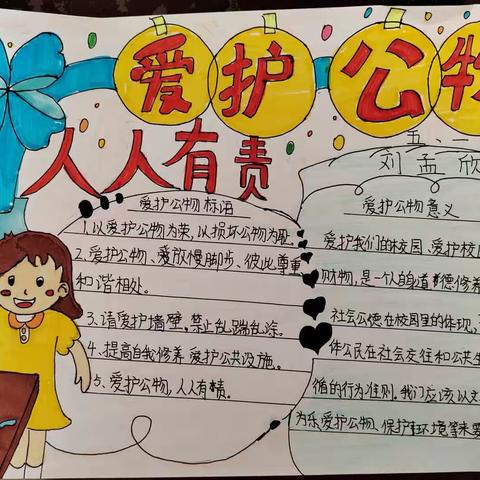 爱护公物
人人有责
五、一
刘孟欣
爱护公物标语
1、以爱护公物为荣，以损坏公物为耻。
2、爱护公物、爱放慢脚步、彼此尊重
和谐相处。
3、请爱护墙壁，禁止乱踹乱涂。
4、提高自我修养 爱护公共设施。
5、爱护公物，人人有责。
爱护公物意义
爱护我们的校园、爱护校
财物，是一个人的道德修养
社会公德在校园里的体现，
体公民在社会交往和公共生
循的行为准则。我们应该以
为乐、爱护公物、保护环境等来要